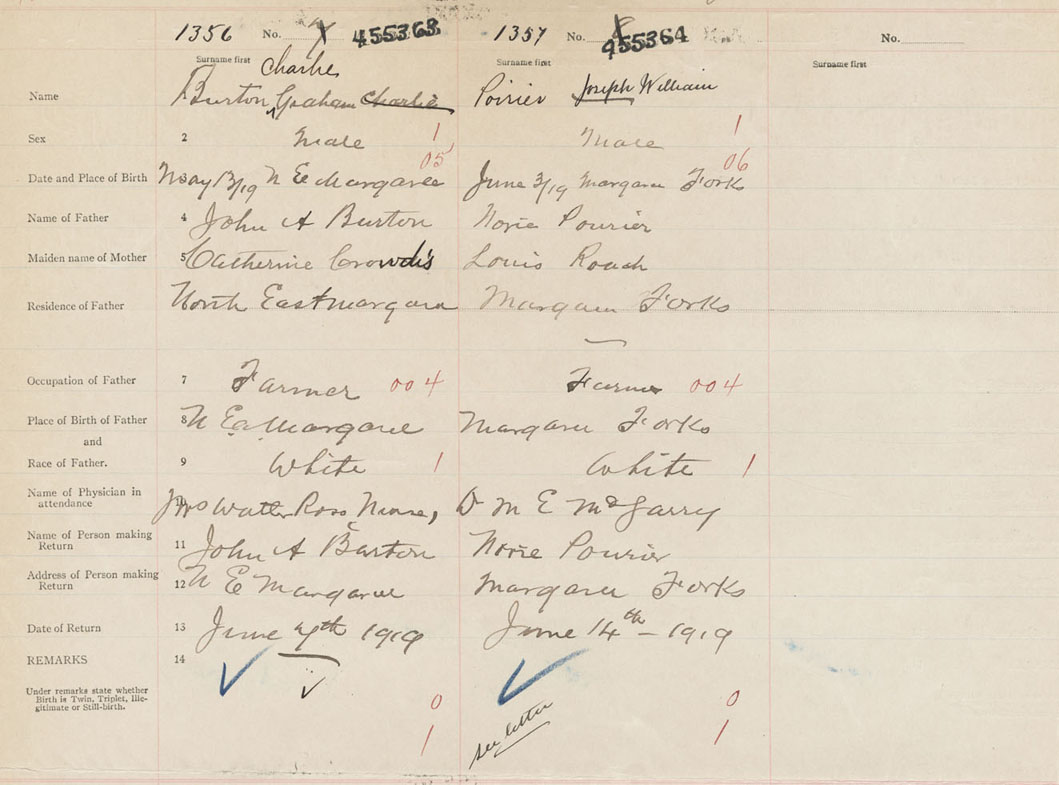 1356 No. X 455363 1357 No. X 455364 No.
Surname first Surname first Surname first
Charlie
Name Burton, Graham Charlie Poirier Joseph William
Sex 2 Male 1 Male 1
05 06
Date and Place of Birth May 13/19 N E Margaree June 3/19 Margaree Forks
Name of Father 4 John A Burton Norie Pourier
Maiden name of Mother 5 Catherine Crowdis Louis Roach
Residence of Father North East Margaree Margaree Forks
Occupation of Father 7 Farmer 004 Farmer 004
Place of Birth of Father 8 N Ea Margaree Margaree Forks
and
Race of Father. 9 White 1 White 1
Name of Physician in
attendance 10 Mrs Walter Ross Nurse, D M E McGarry
Name of Person making
Return 11 John A Burton Norie Pourier
Address of Person making
Return 12 N E Margaree Margaree Forks
Date of Return 13 June 7th 1919 June 14th - 1919
REMARKS 14
Under remarks state whether
Birth is Twin, Triplet, Ille-
gitimate or Still-birth.
0 0
1 1
see letter